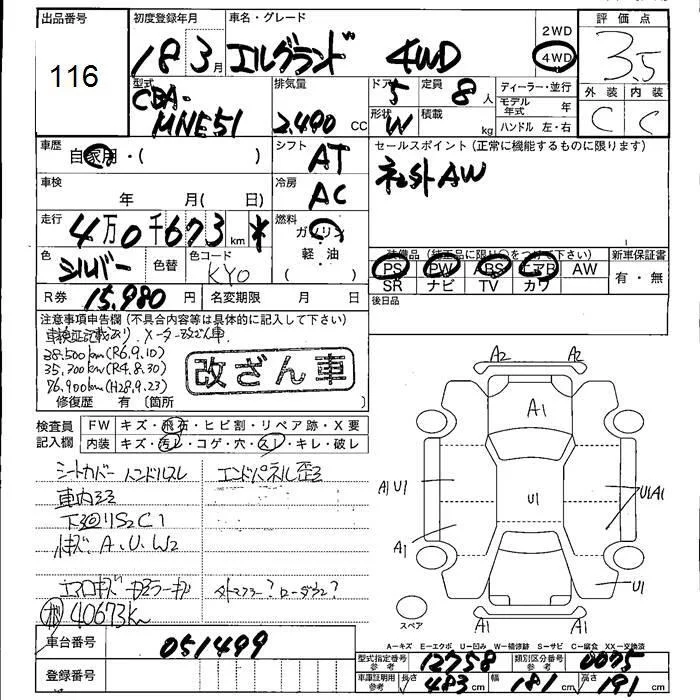 出品番号 初度登録年月 車名・グレード 2WD 4WD 評価点
116 18 3月 エルグランド 4WD 3.5
型式 排気量 ドア 定員 ディーラー・並行 外装 内装
CBA-MNE51 2,490 CC 5 8人 モデル年式 年 C C
形状 W 積載 kg ハンドル 左・右
車歴 自家用・( ) シフト AT セールスポイント(正常に機能するものに限ります)
車検 年 月( 日) 冷房 AC 社外AW
走行 4万0千673km * 燃料 ガソリン
軽・油 装備品(純正品に限り○をつけて下さい) 新車保証書
色 シルバー 色替 色コード KY0 PS PW ABS エアB AW 有・無
SR ナビ TV カワ
R券 15,980円 名変期限 月 日 後日品
注意事項申告欄(不具合内容等は具体的に記入して下さい)
車検証記載あり。メーター改ざん車
38,500km(R6.9.10)
35,700km(R4.8.30)
76,900km(H28.9.23)
改ざん車
修復歴 有〔箇所
検査員記入欄 FW キズ・飛石・ヒビ割・リペア跡・X要
内装 キズ・汚レ・コゲ・穴・スレ・キレ・破レ
シートカバー ハンドルスレ エンドパネル歪ミ
車内ヨゴレ
下廻りS2C1
小キズ・A、U、W2
エアロキズ
マフラー? ローダウン?
40673km
A2 A2
A1
A1U1 U1 U1A1
A1 U1
スペア A1 A1
A−キズ E−エクボ U−凹み W−補修跡 S−サビ C−腐食 XX−交換済
車台番号 051499
型式指定番号 参考 12758 類別区分番号 参考 0075
登録番号 車庫証明用 参考 長さ 483cm 幅 181cm 高さ 191cm